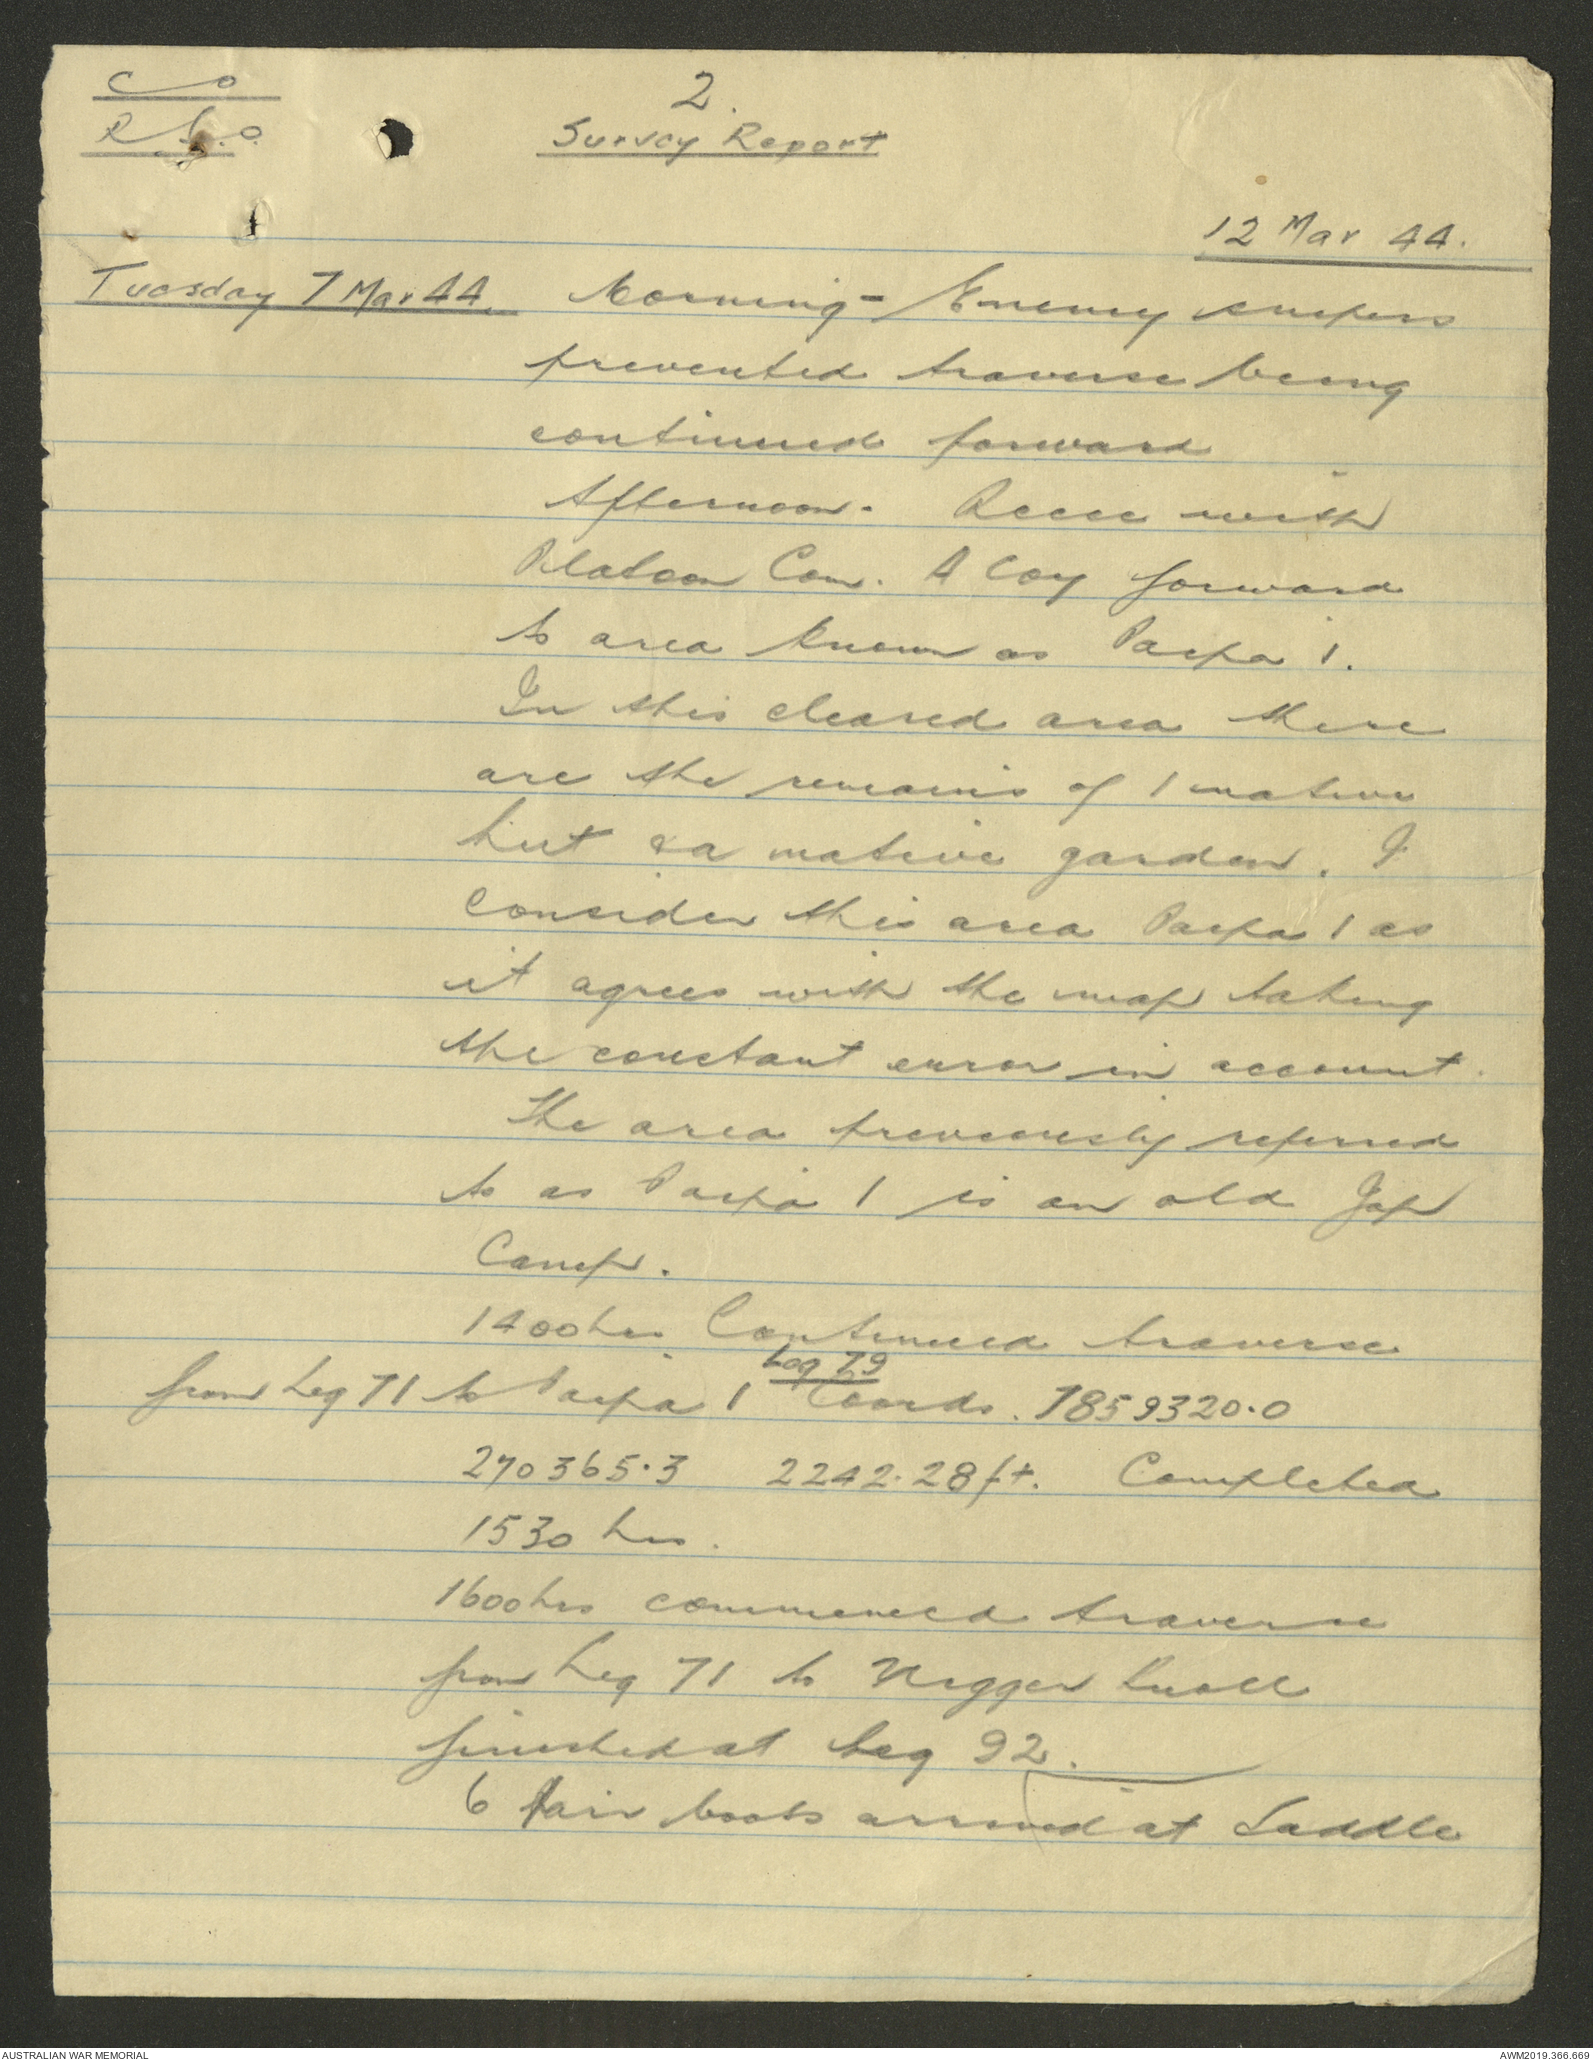 C O
R.S.O.
2.
Survey Report
12 Mar 44.
Tuesday 7 Mar 44. Morning - Enemy snipers
prevented traverse being
continued forward
Afternoon. Recce with
Platoon Com. A Coy forward
to area known as Paipa 1.
In this cleared area there
are the remains of 1 native
hut & a native garden. I
consider this area Paipa 1 as
it agrees with the map taking
the constant error in account.
The area previously referred
to as Paipa 1 is an old Jap
Camp.
1400 hrs Continued traverse
Leg 79
from Leg 71 to Paipa 1 Coords. 7859320.0
270365.3 2242.28 ft. Completed
1530 hrs.
1600 hrs commenced traverse
from Leg 71 to Nigger Knoll
finished at Leg 92.
6 Pair boots arrived at Saddle
AUSTRALIAN WAR MEMORIAL
AWM2019.366.669